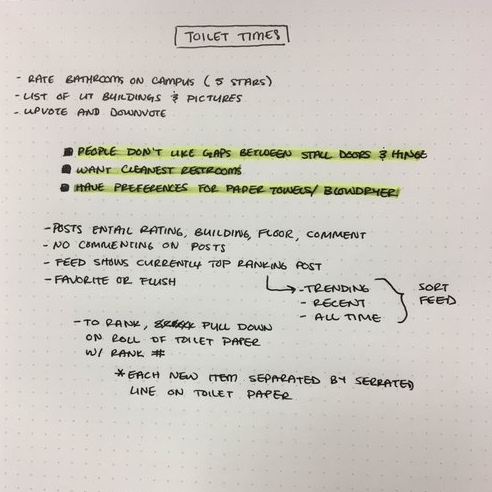 TOILET TIMES
- RATE BATHROOMS ON CAMPUS (5 STARS)
- LIST OF UT BUILDINGS & PICTURES
- UPVOTE AND DOWNVOTE
■ PEOPLE DON'T LIKE GAPS BETWEEN STALL DOORS & HINGE
■ WANT CLEANEST RESTROOMS
■ HAVE PREFERENCES FOR PAPER TOWELS/ BLOWDRYER
- POSTS ENTAIL RATING, BUILDING, FLOOR, COMMENT
- NO COMMENTING ON POSTS
- FEED SHOWS CURRENTLY TOP RANKING POST
- FAVORITE OR FLUSH
→ - TRENDING
- RECENT
- ALL TIME
SORT
FEED
- TO RANK, PULL DOWN
ON ROLL OF TOILET PAPER
W/ RANK #
* EACH NEW ITEM SEPARATED BY SERRATED
LINE ON TOILET PAPER